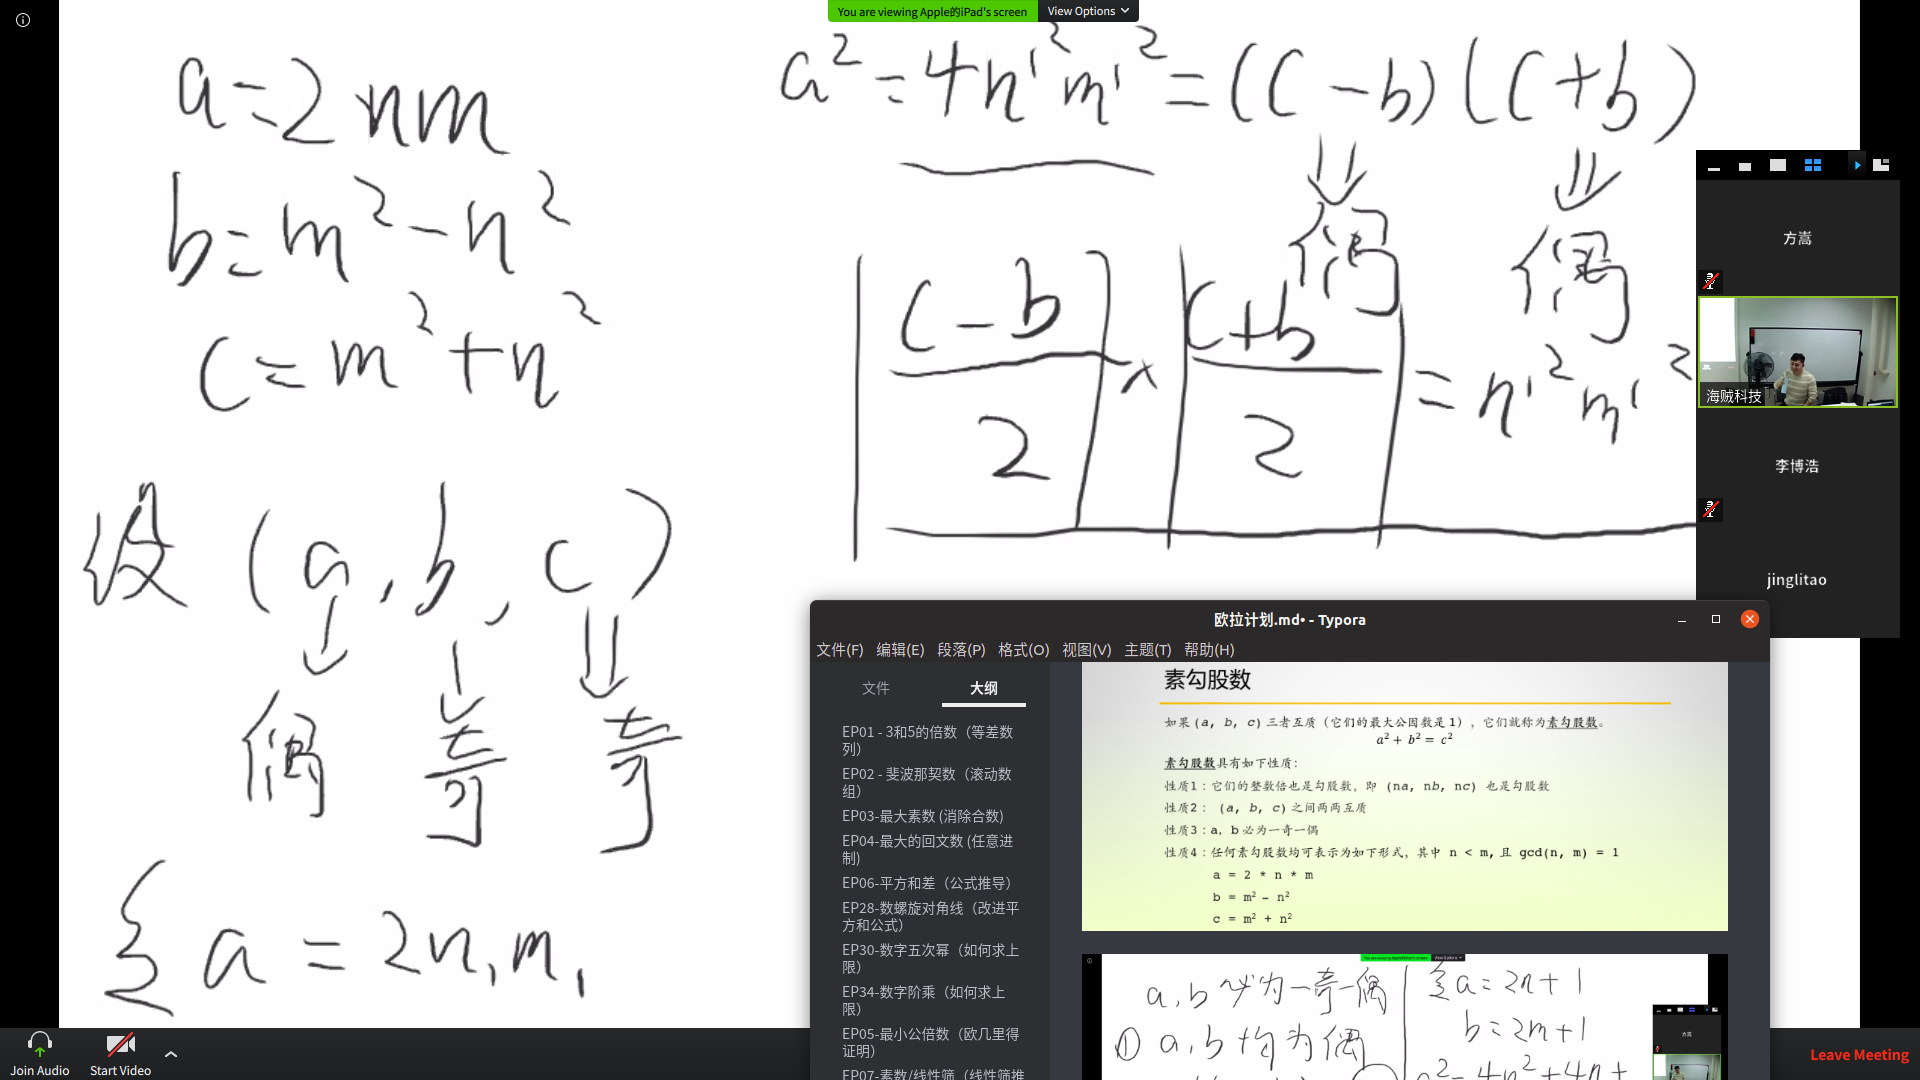 You are viewing Apple的iPad's screen
View Options
a=2nm
b=m²-n²
c=m²+n²
设 (a,b,c)
偶 奇 奇
a=2n,m,
a²=4n'²m'²=(c-b)(c+b)
偶 偶
c-b
2
×
c+b
2
=n'²m'²
方嵩
海贼科技
李博浩
jinglitao
欧拉计划.md• - Typora
文件(F) 编辑(E) 段落(P) 格式(O) 视图(V) 主题(T) 帮助(H)
文件 大纲
EP01 - 3和5的倍数（等差数
列）
EP02 - 斐波那契数（滚动数
组）
EP03-最大素数 (消除合数)
EP04-最大的回文数 (任意进
制)
EP06-平方和差（公式推导）
EP28-数螺旋对角线（改进平
方和公式）
EP30-数字五次幂（如何求上
限）
EP34-数字阶乘（如何求上
限）
EP05-最小公倍数（欧几里得
证明）
EP07-素数/线性筛（线性筛推
素勾股数
如果 (a, b, c) 三者互质（它们的最大公因数是 1），它们就称为素勾股数。
a² + b² = c²
素勾股数具有如下性质：
性质1：它们的整数倍也是勾股数，即 (na, nb, nc) 也是勾股数
性质2： (a, b, c) 之间两两互质
性质3：a, b 必为一奇一偶
性质4：任何素勾股数均可表示为如下形式，其中 n < m, 且 gcd(n, m) = 1
a = 2 * n * m
b = m² – n²
c = m² + n²
a,b 必为一奇一偶
① a,b 均为偶
a=2n+1
b=2m+1
a²=4n²+4n+
方嵩
Join Audio
Start Video
Leave Meeting